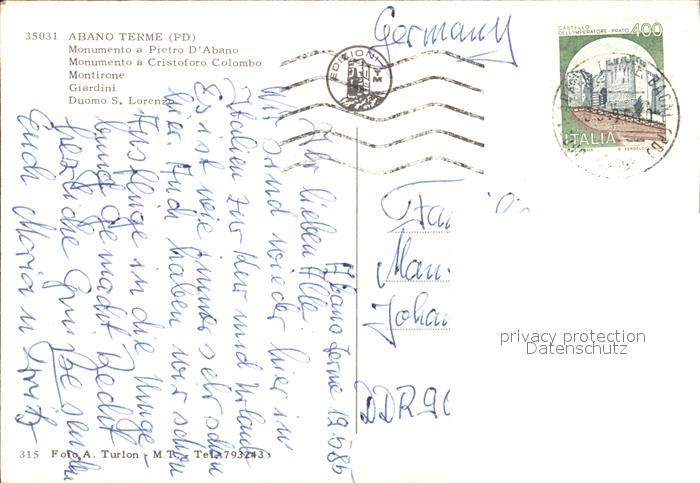 35031 ABANO TERME (PD)
Monumento a Pietro D'Abano
Monumento a Cristoforo Colombo
Montirone
Giardini
Duomo S. Lorenzo
EDIZIONI
Germany
CASTELLO
DELL'IMPERATORE - PRATO
400
ITALIA
Abano Terme 19.5.85
Ihr lieben Alle!
Wir sind wieder hier in
Italien zur Kur und Urlaub
Es ist wie immer sehr schön
hier. Auch haben wir schon
Ausflüge in die Umge-
bung gemacht. Recht
herzliche Grüsse senden
Euch Maria u. Fritz
Johan
DDR 90
privacy protection
Datenschutz
315 Foto A. Turlon - M.T. - Tel. 793243